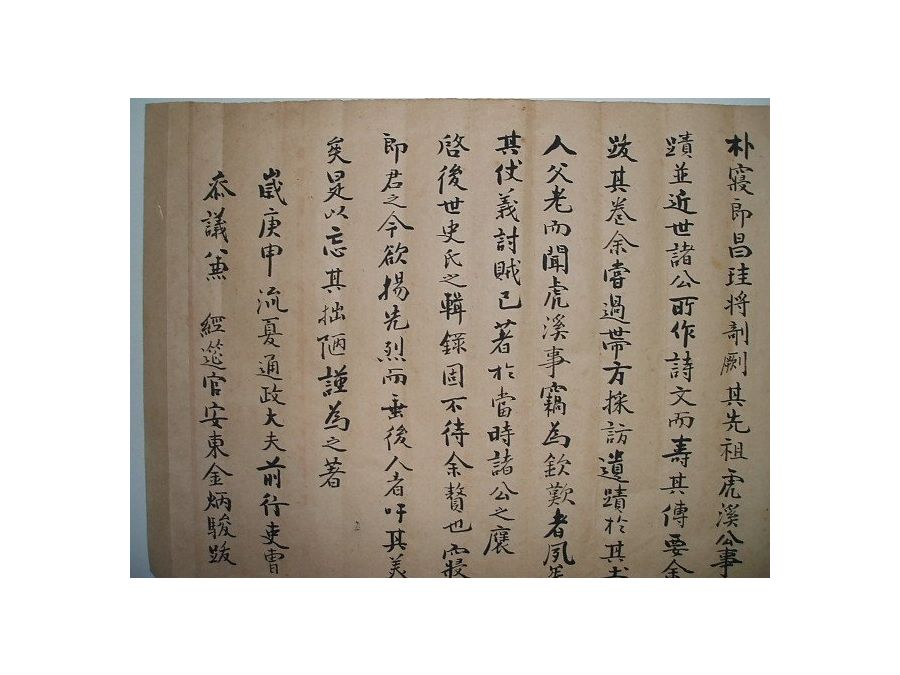 朴寢郎昌珪将剞劂其先祖虎溪公事
蹟並近世諸公所作詩文而壽其傳要余
跋其巻余嘗過帶方採訪遺蹟於其
人父老而聞虎溪事竊為欽歎者夙
其仗義討賊已著於當時諸公之襃
啓後世史氏之輯錄固不待余贅也寢
郎君之今欲揚先烈而垂後人者吁其美
矣是以忘其拙陋謹為之著
歲庚申流夏通政大夫前行吏曹
叅議兼 經筵官安東金炳駿跋